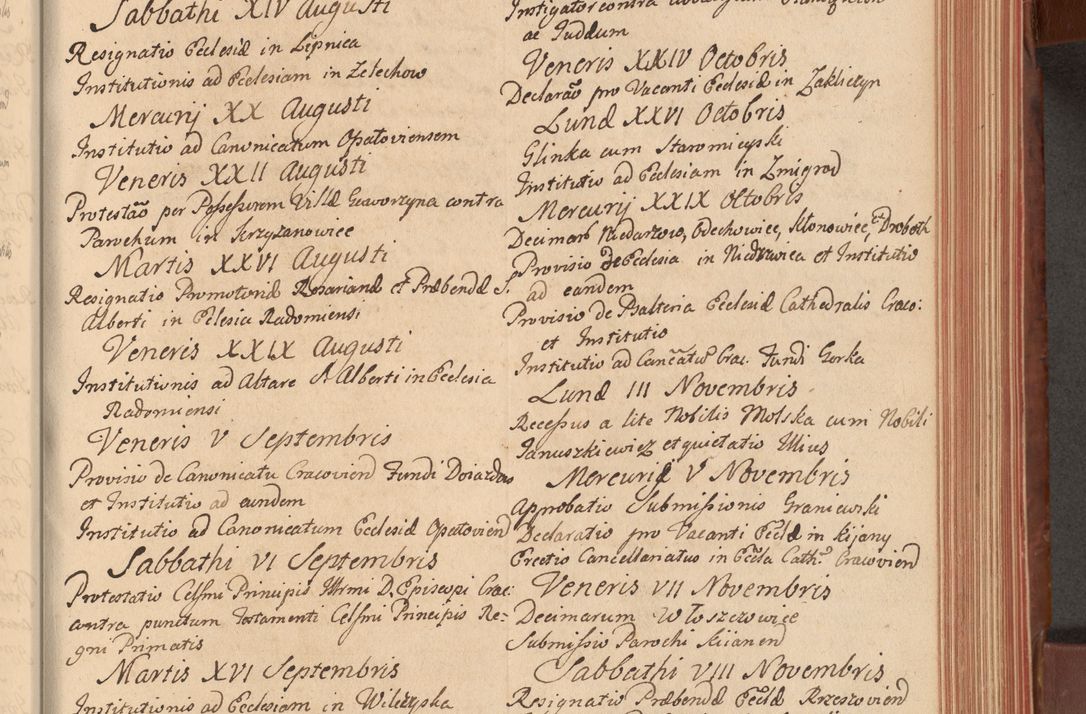 Sabbathi XIV Augusti
Resignatio Ecclesiæ in Lipnica
Institutionis ad Ecclesiam in Zelechow
Mercurij XX Augusti
Institutio ad Canonicatum Opatoviensem
Veneris XXII Augusti
Protestaõ per Possessorem Villæ Gaworzyna contra
Parochum in Krzyzanowice
Martis XXVI Augusti
Resignatio Promotoriæ Rosarianæ et Præbendæ S.
Alberti in Eclesia Radomiensi
Veneris XXIX Augusti
Institutionis ad Altare S. Alberti in Ecclesia
Radomiensi
Veneris V Septembris
Provisio de Canonicatu Cracovien Fundi Doiazdow
et Institutio ad eundem
Institutio ad Canonicatum Ecclesiæ Opatovien
Sabbathi VI Septembris
Protestatio Celsmi Principis Illrmi D. Episcopi Crac:
contra punctum Testamenti Celsmi Principis Re:
gni Primatis
Martis XVI Septembris
Institutionis ad Ecclesiam in Wilczyska
Instigator contra
ac Judæum
Veneris XXIV Octobris
Declaraõ pro Vacanti Ecclesiæ in Zakliczyn
Lunæ XXVI Octobris
Glinka cum Staromieyski
Institutio ad Ecclesiam in Zmigrod
Mercurij XXIX Octobris
Decimarum Niedarzow, Odechowiec, Klonowiec, et Droboth
Provisio de Ecclesia in Niedrwica et Institutio
ad eandem
Provisio de Psalteria Ecclesiæ Cathedralis Craco:
et Institutio
Institutio ad Canc̃atũ Crac. Fundi Gorka
Lunæ III Novembris
Recessus a lite Nobilis Molska cum Nobili
Januszkiewicz et quietatio Illius
Mercurij V Novembris
Approbatio Submissionis Graniewski
Declaratio pro Vacanti Eccłæ in Kijany
Erectio Cancellariatus in Eccła Cath: Cracovien
Veneris VII Novembris
Decimarum Włoszczowice
Submissio Parochi Kiianen
Sabbathi VIII Novembris
Resignatio Præbendæ Eccłæ Rzeszovien